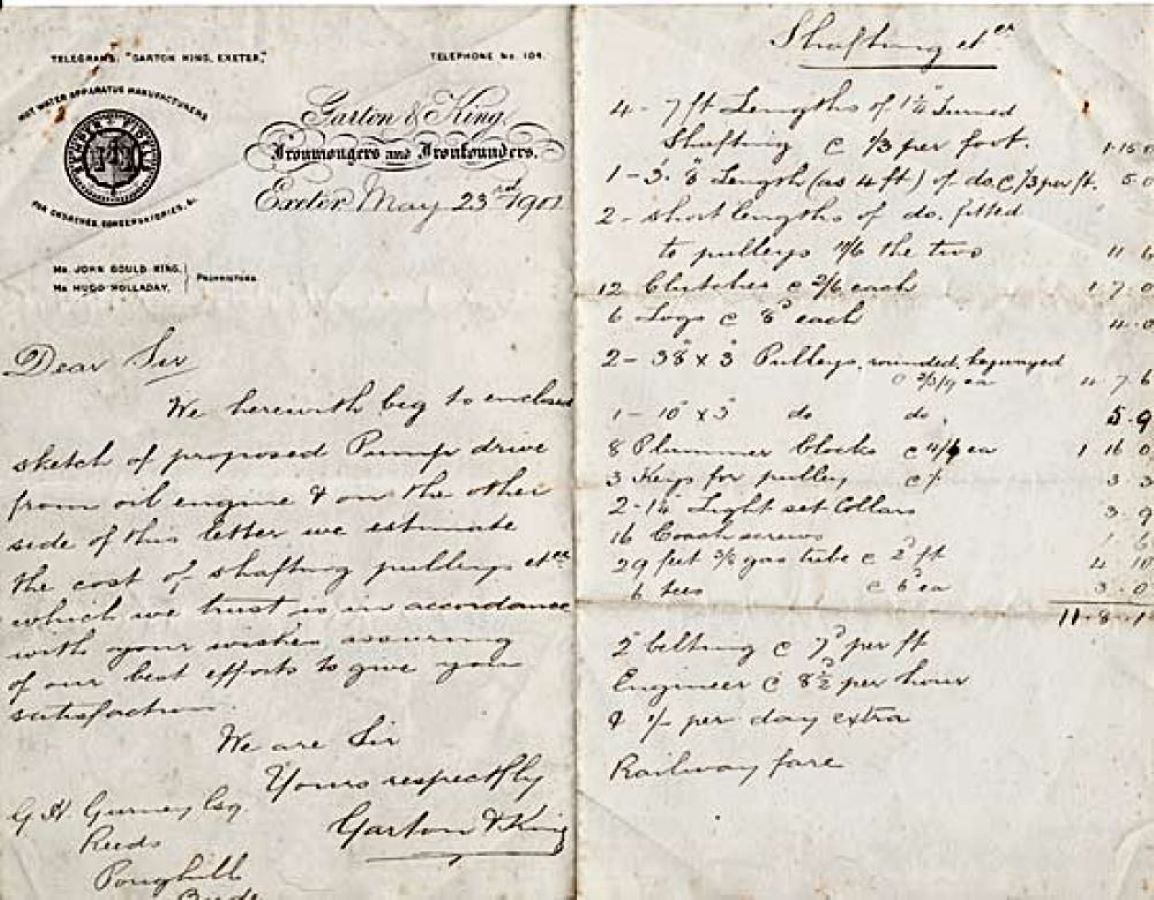 TELEGRAMS: "GARTON KING, EXETER,"
TELEPHONE No. 104.
HOT WATER APPARATUS MANUFACTURERS
FOR CHURCHES, CONSERVATORIES, &c
Garton & King,
Ironmongers and Ironfounders.
Exeter, May 23rd 1901
Mr. JOHN GOULD KING,
Mr HUGO HOLLADAY,
PROPRIETORS
Dear Sir
We herewith beg to enclose
sketch of proposed Pump drive
from oil engine & on the other
side of this letter we estimate
the cost of shafting pulleys etc
which we trust is in accordance
with your wishes assuring
of our best efforts to give you
satisfaction.
We are Sir
Yours respectfly
Garton & King
G H. Gurney Esq.
Reeds
Poughill
Bude
Shafting etc
4 - 7 ft Lengths of turned
Shafting @ 1/3 per foot. 1.15.0
1 - 3' 8" Length (as 4 ft) of do @ 1/3 per ft. 5.0
2 - short lengths of do. fitted
to pulleys 11/6 the two 11 6
12 Clutches @ 2/6 each 1.7.0
6 Logs @ 8d each 4.0
2 - 38" x 3" Pulleys, rounded,
ea 4 7 6
1 - 10" x 3" do do. 5.9
8 Plummer blocks @ 4/6 ea 1 16 0
3 Keys for pulley @ 3.3
2 - Light set Collars 3.9
16 Coach screws 1 6
29 feet 3/8 gas tube @ 2d ft 4 10
6 tees @ 6d ea 3.0
11.8.1
2" belting @ 7d per ft
Engineer @ 8½d per hour
& 1/- per day extra
Railway fare